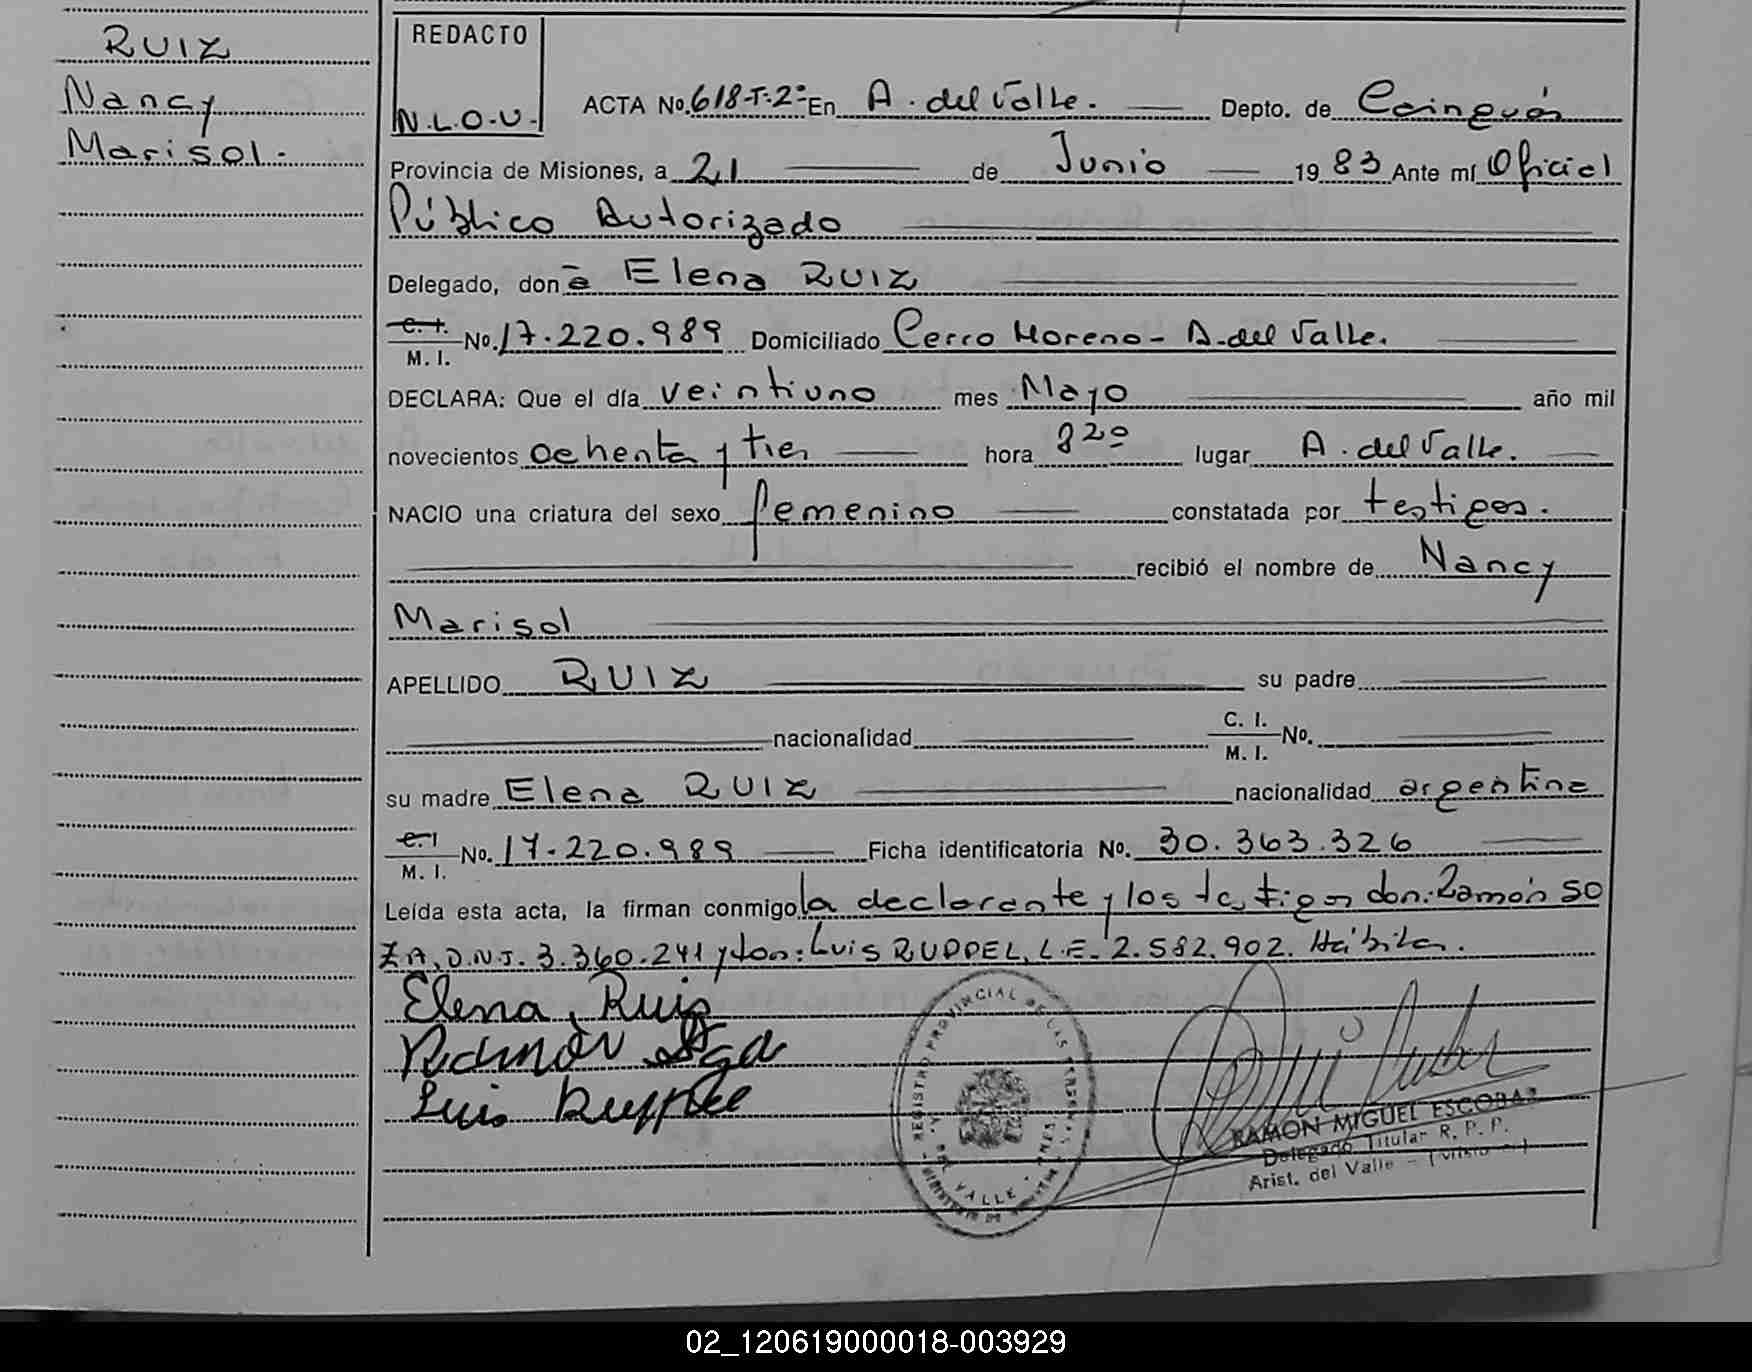 RUIZ
Nancy
Marisol.
REDACTO
N.L.O.U.
ACTA No. 618-T-2º En A. del Valle. Depto. de Cainguás
Provincia de Misiones, a 21 de Junio 1983 Ante mí Oficial
Público Autorizado
Delegado, don a Elena RUIZ
C. I.
M. I. No. 17.220.989 Domiciliado Cerro Moreno - A. del Valle.
DECLARA: Que el día veintiuno mes Mayo año mil
novecientos ochenta y tres hora 820 lugar A. del Valle.
NACIO una criatura del sexo femenino constatada por testigos.
recibió el nombre de Nancy
Marisol
APELLIDO RUIZ su padre
nacionalidad C. I.
M. I. No.
su madre Elena RUIZ nacionalidad argentina
C. I
M. I. No. 17.220.989 Ficha identificatoria No. 30.363.326
Leída esta acta, la firman conmigo la declarante y los testigos don: Ramón SO
ZA, D.N.I. 3.360.241 y don: Luis RUPPEL, L.E. 2.582.902. Hábiles.
Elena Ruiz
Ramón
Luis Ruppel
REGISTRO PROVINCIAL DE LAS PERSONAS
DEL VALLE
RAMON MIGUEL ESCOBAR
Delegado Titular R. P. P.
Arist. del Valle - (Misiones)
02_120619000018-003929